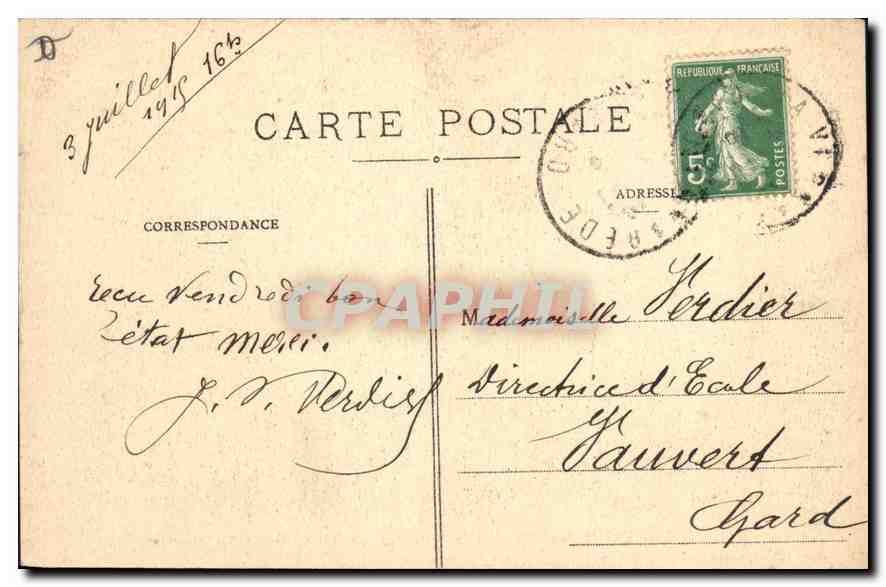 D
3 juillet
1915 16h
CARTE POSTALE
REPUBLIQUE FRANÇAISE
5c
POSTES
ADRESSE
CORRESPONDANCE
recu vendredi bon
état merci.
J. V. Verdier
CPAPHIL
Mademoiselle Verdier
Directrice d'Ecole
Vauvert
Gard